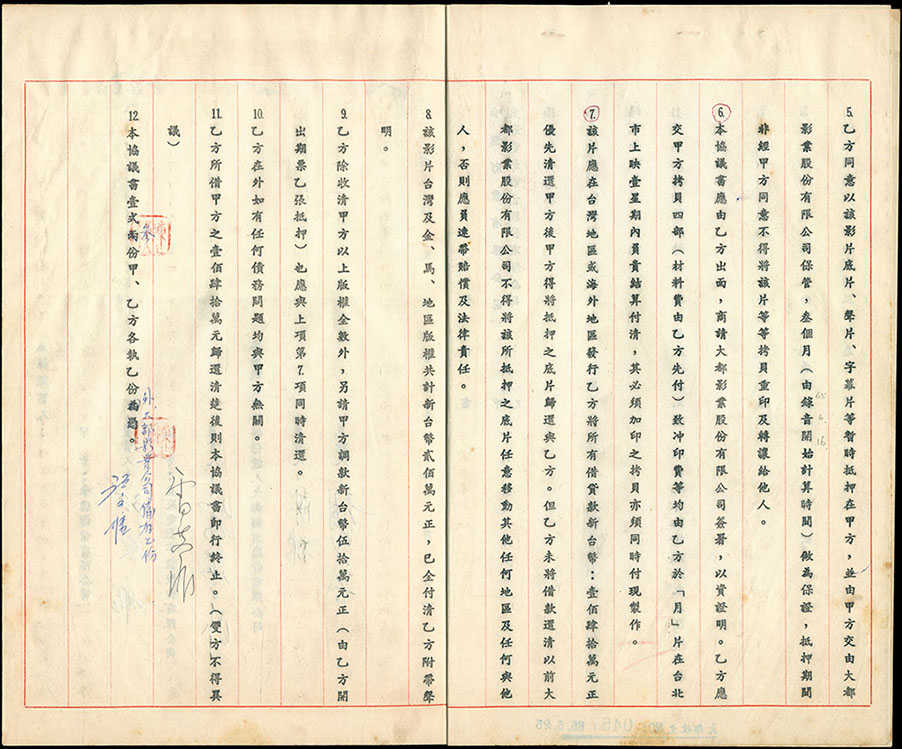 5.乙方同意以該影片底片、聲片、字幕片等暫時抵押在甲方，並由甲方交由大都
影業股份有限公司保管，叁個月（由錄音開始計算時間）做為保證，抵押期間
65
6.
16
非經甲方同意不得將該片等等拷貝重印及轉讓給他人。
6.本協議書應由乙方出面，商請大都影業股份有限公司簽署，以資證明。乙方應
交甲方拷貝四部（材料費由乙方先付）致冲印費等均由乙方於「月」片在台北
市上映壹星期內負責結算付清，其必須加印之拷貝亦須同時付現製作。
7.該片應在台灣地區或海外地區發行乙方將所有借貸款新台幣：壹佰肆拾萬元正
優先清還甲方後甲方得將抵押之底片歸還與乙方。但乙方未將借款還清以前大
都影業股份有限公司不得將該所抵押之底片任意移動其他任何地區及任何與他
人，否則應負連帶賠償及法律責任。
8.該影片台灣及金、馬、地區版權共計新台幣貳佰萬元正，已全付清乙方附帶聲
明。
9.乙方除收清甲方以上版權全數外，另請甲方調款新台幣伍拾萬元正（由乙方開
出期票乙張抵押）也應與上項第7.項同時清還。
10.乙方在外如有任何債務問題均與甲方無關。
11.乙方所借甲方之壹佰肆拾萬元歸還清楚後則本協議書即行終止。（雙方不得異
議）
12.本協議書壹式兩份甲、乙方各執乙份為憑。
叁
外大都影業公司備存乙份